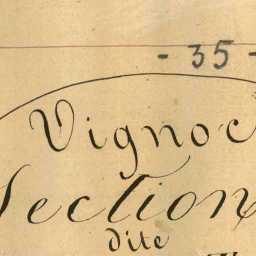 - 35 -
Vignoc
Section
dite